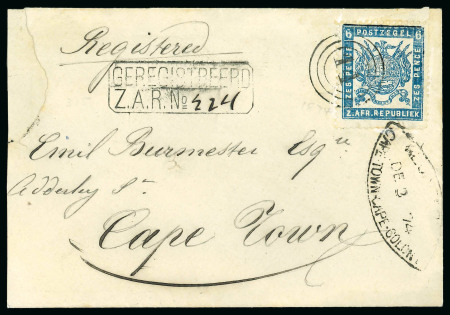 Registered
GEREGISTREERD
Z.A.R. No 424
6 POSTZEGEL 6
ZES PENCE
ZES PENCE
Z. AFR. REPUBLIEK
Emil Burmester Esqre
Adderley St.
Cape Town
DE 2 74
CAPE TOWN-CAPE-COLONY